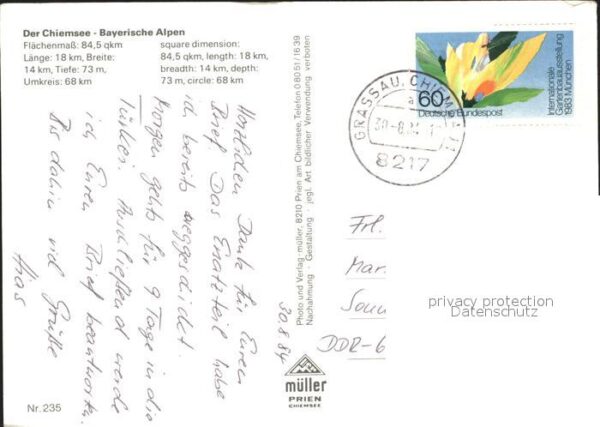 Der Chiemsee - Bayerische Alpen
Flächenmaß: 84,5 qkm
Länge: 18 km, Breite:
14 km, Tiefe: 73 m,
Umkreis: 68 km
square dimension:
84,5 qkm, length: 18 km,
breadth: 14 km, depth:
73 m, circle: 68 km
Herzlichen Dank für Euren
Brief. Das Ersatzteil habe
ich bereits weggeschickt.
Morgen gehts für 9 Tage in die
Türkei. Anschließend werde
ich Euren Brief beantworten.
Bis dahin viel Grüße
30.8.84
Photo und Verlag - müller, 8210 Prien am Chiemsee, Telefon 0 80 51 / 16 39
Nachahmung - Gestaltung jegl. Art bildlicher Verwendung verboten
müller
PRIEN
CHIEMSEE
Nr. 235
60
Deutsche Bundespost
Internationale
Gartenbauausstellung
1983 München
GRASSAU, CHIEM
30.-8.84
8217
Frl.
Mar
Sonn
DDR-6
privacy protection
Datenschutz